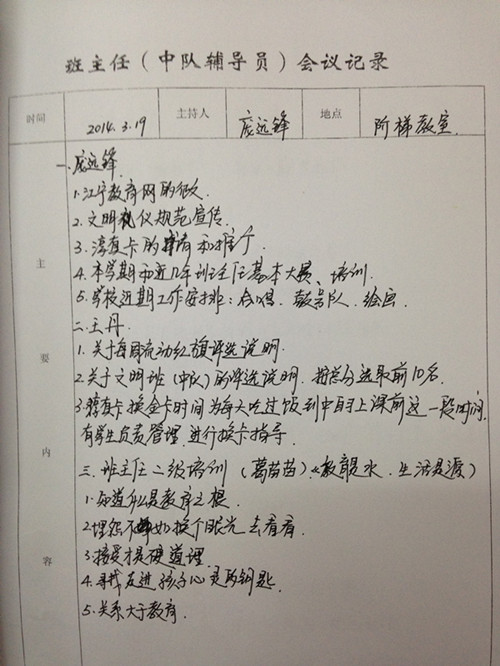 班主任（中队辅导员）会议记录
时间 2014.3.19 主持人 庞远锋 地点 阶梯教室
主要内容
一、庞远锋
1.江宁教育网的征文
2.文明礼仪规范宣传.
3.淳有卡的申请和推广
4.本学期和近几年班主任基本大赛、培训.
5.学校近期工作安排：合唱、鼓号队、绘画
二.王丹.
1.关于每周流动红旗评选说明.
2.关于文明班（中队）的评选说明.按总分选取前10名.
3.换金卡时间为每天吃过饭到中午上课前这一段时间,
有学生负责管理 进行换卡指导.
三.班主任二级培训（葛苗苗）《教育是水.生活是源》
1.知道什么是教育之根
2.埋怨不如换个眼光去看看.
3.接受才是硬道理.
4.寻找走进孩子心灵的钥匙
5.关系大于教育.